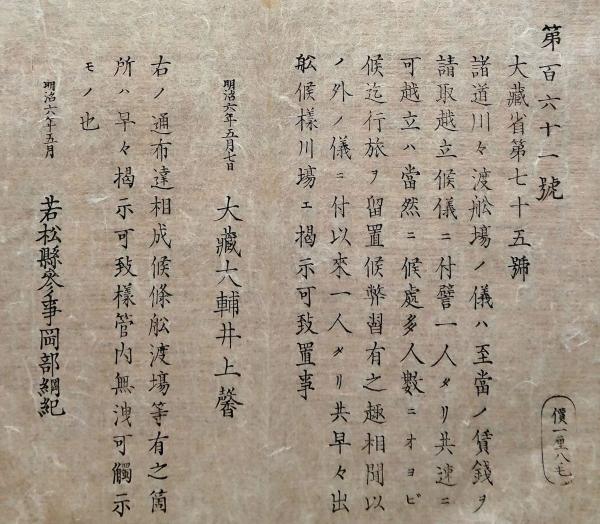 第百六十一號
大藏省第七十五號
諸道川々渡舩場ノ儀ハ至當ノ賃錢ヲ
請取越立候儀ニ付譬一人タリ共速ニ
可越立ハ當然ニ候處多人數ニオヨビ
候迄行旅ヲ留置候弊習有之趣相聞以
ノ外ノ儀ニ付以來一人タリ共早々出
舩候樣川場エ揭示可致置事
明治六年五月七日
大藏大輔井上馨
右ノ通布達相成候條舩渡場等有之箇
所ハ早々揭示可致樣管內無洩可觸示
モノ也
明治六年五月
若松縣參事岡部綱紀
價一厘八毛